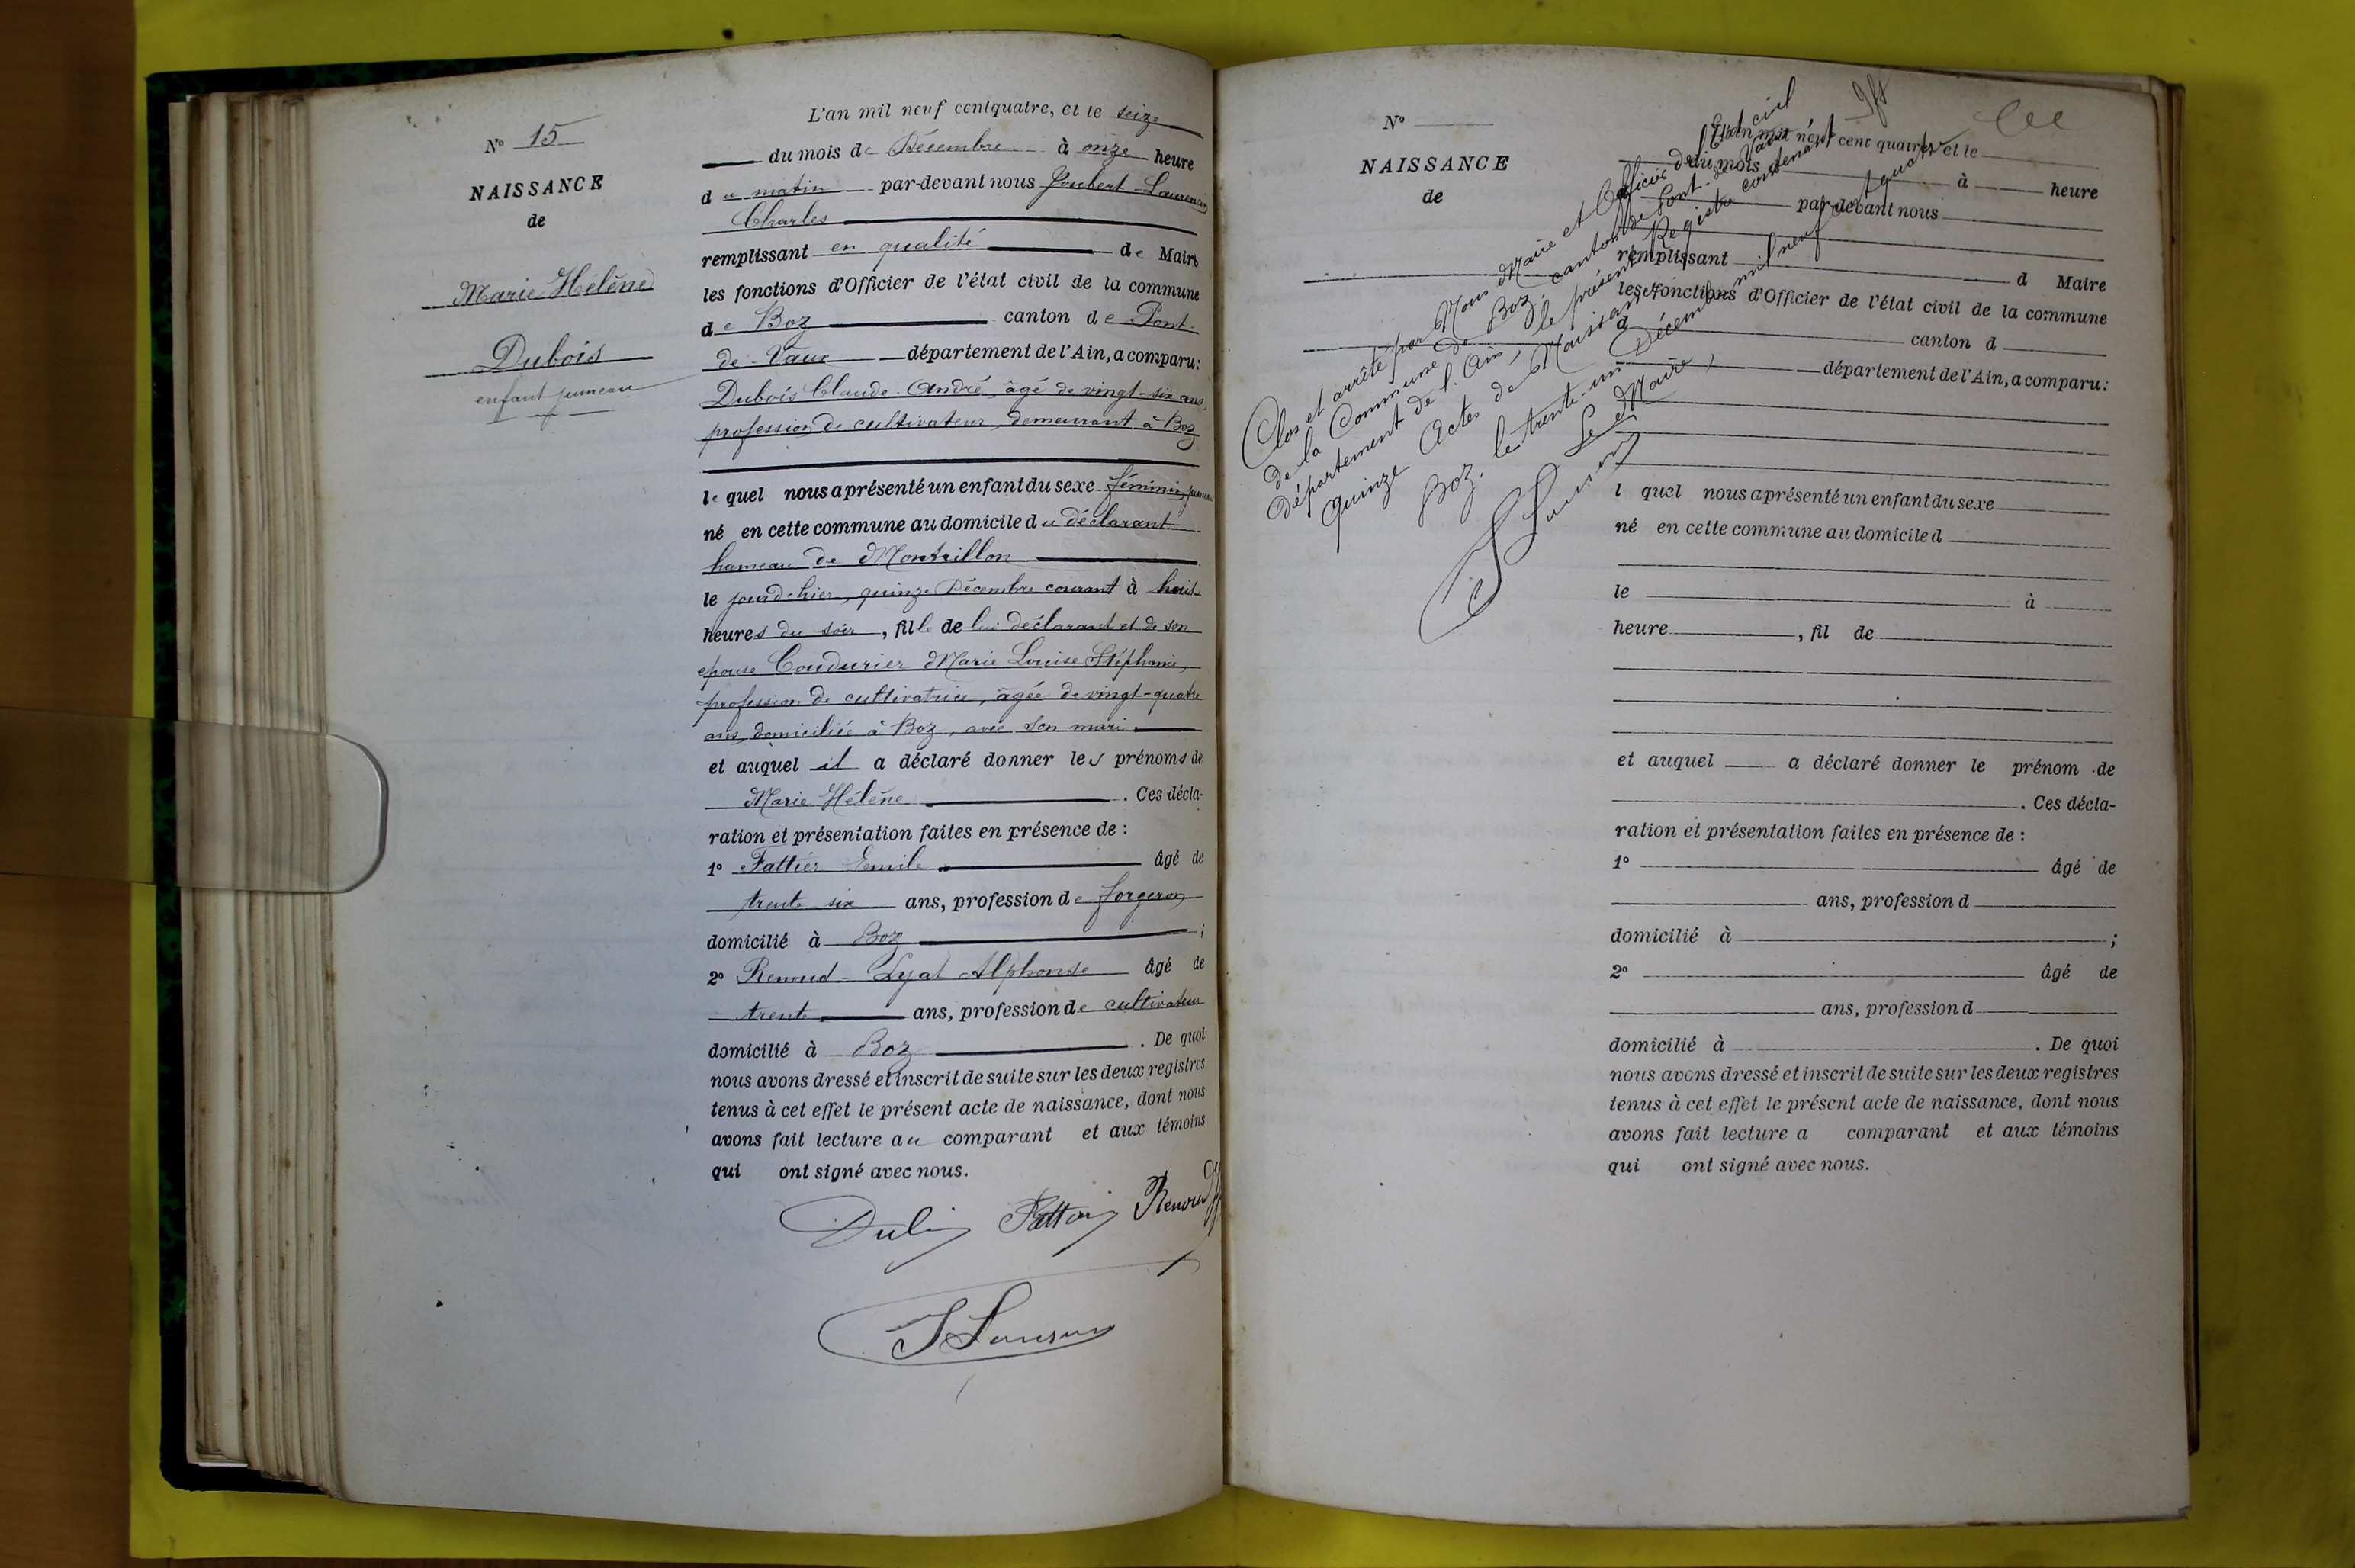 N° 15
NAISSANCE
de
Marie Hélène
Dubois
enfant jumeau
L'an mil neuf cent quatre, et le seize
du mois de Décembre à onze heure
du matin par-devant nous Joubert Laurencin
Charles
remplissant en qualité de Maire
les fonctions d'Officier de l'état civil de la commune
de Boz canton de Pont-
de-Vaux département de l'Ain, a comparu:
Dubois Claude André, âgé de vingt-six ans,
profession de cultivateur, demeurant à Boz
le quel nous a présenté un enfant du sexe féminin, jumeau
né en cette commune au domicile du déclarant
hameau de
le jour d'hier, quinze Décembre courant à huit
heures du soir, fille de lui déclarant et de son
épouse Coudurier Marie Louise Stéphanie,
profession de cultivatrice, âgée de vingt-quatre
ans, domiciliée à Boz, avec son mari
et auquel il a déclaré donner les prénoms de
Marie Hélène. Ces décla-
ration et présentation faites en présence de :
1° Fattier Emile âgé de
trente six ans, profession de forgeron
domicilié à Boz ;
2° Renoud-Lyat Alphonse âgé de
trente ans, profession de cultivateur
domicilié à Boz. De quoi
nous avons dressé et inscrit de suite sur les deux registres
tenus à cet effet le présent acte de naissance, dont nous
avons fait lecture au comparant et aux témoins
qui ont signé avec nous.
N°
NAISSANCE
de
L'an mil neuf cent quatre, et le
du mois à heure
d par-devant nous
remplissant d Maire
les fonctions d'Officier de l'état civil de la commune
d canton d
département de l'Ain, a comparu:
l quel nous a présenté un enfant du sexe
né en cette commune au domicile d
le à
heure , fil de
et auquel a déclaré donner le prénom de
. Ces décla-
ration et présentation faites en présence de :
1° âgé de
ans, profession d
domicilié à ;
2° âgé de
ans, profession d
domicilié à . De quoi
nous avons dressé et inscrit de suite sur les deux registres
tenus à cet effet le présent acte de naissance, dont nous
avons fait lecture a comparant et aux témoins
qui ont signé avec nous.
Clos et arrêté par Nous Maire et Officier de l'Etat civil
de la Commune de Boz, canton de Pont-de-Vaux
département de l'Ain, le présent Registre contenant
quinze Actes de Naissances
Boz, le trente-un Décembre mil neuf cent quatre
Le Maire,